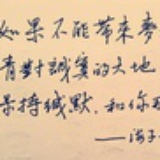 如果不能带來麥
青對誠實的大地
保持缄默.和你
——海子